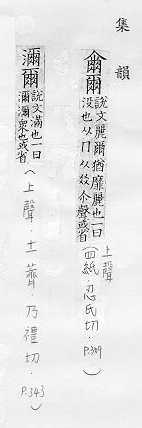 集韻
爾尒
說文麗爾猶靡麗也一曰
没也从冂从㸚尒聲或省
上聲
(四紙·忍氏切·P.309)
濔爾
說文滿也一曰
濔濔衆也或省
(上聲·十薺·乃禮切·P.343)